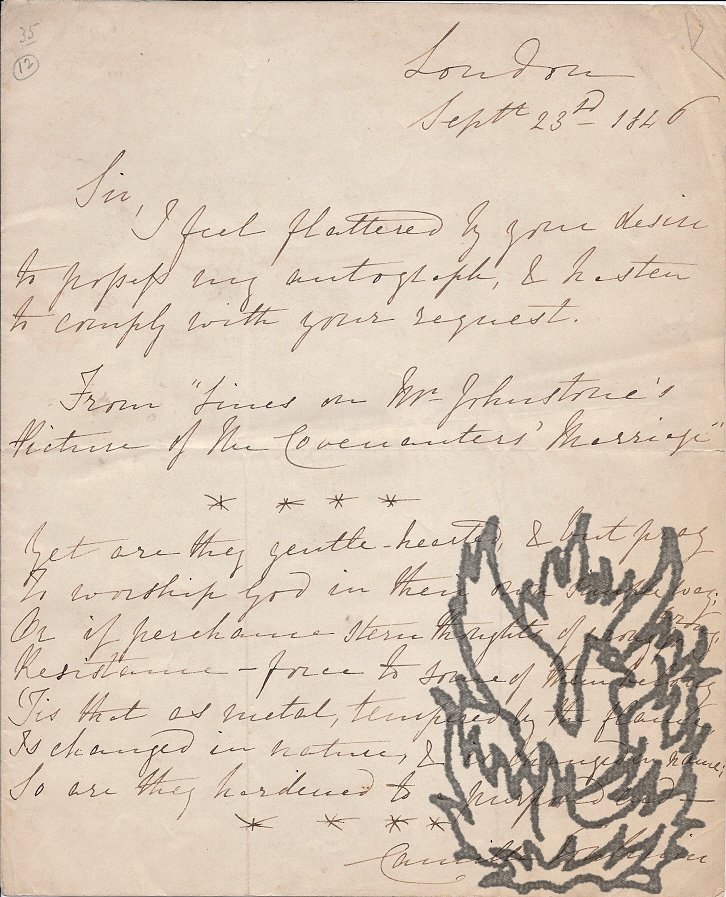 35
12
London
Septr 23rd 1846
Sir,
I feel flattered by your desire
to possess my autograph, & hasten
to comply with your request.
From "Lines on Mr Johnstone's
Picture of the Covenanters' Marriage"
* * * *
Yet are they gentle-hearted, & but pray
To worship God in their own simple way;
Or if perchance stern thoughts of
Resistance - force to some of them belong
'Tis that as metal, tempered by the flame
Is changed in nature, & is changed in name;
So are they hardened to a
* * * *
Camilla Toulmin